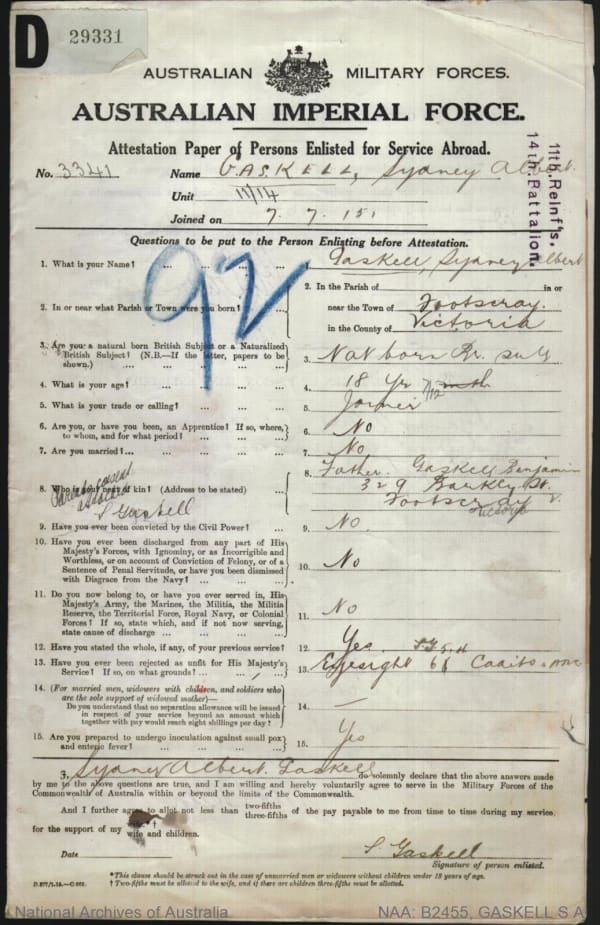 D
29331
AUSTRALIAN MILITARY FORCES.
AUSTRALIAN IMPERIAL FORCE.
Attestation Paper of Persons Enlisted for Service Abroad.
11th. Reinf's.
14th. Battalion.
No. 3341 Name GASKELL, Sydney Albert.
Unit 11/14
Joined on 7. 7. 15
Questions to be put to the Person Enlisting before Attestation.
92
1. What is your Name? ... ... ... 1. Gaskell, Sydney Albert
2. In or near what Parish or Town were you born? ... 2. In the Parish of in or
near the Town of Footscray.
in the County of Victoria
3. Are you a natural born British Subject or a Naturalized
British Subject? (N.B.—If the latter, papers to be
shown.) ... ... ... 3. Nat born Br. sub
4. What is your age? ... ... ... 4. 18 Yr 7/12 mth
5. What is your trade or calling? ... ... ... 5. Joiner
6. Are you, or have you been, an Apprentice? If so, where,
to whom, and for what period? ... ... ... 6. No
7. Are you married? ... ... ... 7. No
8. Who is your next of kin? (Address to be stated) ... 8. Father. Gaskell Benjamin
329 Barkly St.
Footscray
Victoria
Parents consent
attached
S Gaskell
9. Have you ever been convicted by the Civil Power? ... 9. No.
10. Have you ever been discharged from any part of His
Majesty's Forces, with Ignominy, or as Incorrigible and
Worthless, or on account of Conviction of Felony, or of a
Sentence of Penal Servitude, or have you been dismissed
with Disgrace from the Navy? ... ... ... 10. No
11. Do you now belong to, or have you ever served in, His
Majesty's Army, the Marines, the Militia, the Militia
Reserve, the Territorial Force, Royal Navy, or Colonial
Forces? If so, state which, and if not now serving,
state cause of discharge ... ... ... 11. No
12. Have you stated the whole, if any, of your previous service? 12. Yes.
13. Have you ever been rejected as unfit for His Majesty's
Service? If so, on what grounds? ... 13. Eyesight
14. (For married men, widowers with children, and soldiers who
are the sole support of widowed mother)—
Do you understand that no separation allowance will be issued
in respect of your service beyond an amount which
together with pay would reach eight shillings per day? ... 14. —
15. Are you prepared to undergo inoculation against small pox
and enteric fever? ... ... ... 15. Yes
I, Sydney Albert Gaskell do solemnly declare that the above answers made
by me to the above questions are true, and I am willing and hereby voluntarily agree to serve in the Military Forces of the
Commonwealth of Australia within or beyond the limits of the Commonwealth.
And I further agree to allot not less than two-fifths
three-fifths of the pay payable to me from time to time during my service
for the support of my wife †
wife and children.
Date S. Gaskell
Signature of person enlisted.
* This clause should be struck out in the case of unmarried men or widowers without children under 18 years of age.
† Two-fifths must be allotted to the wife, and if there are children three-fifths must be allotted.
National Archives of Australia NAA: B2455, GASKELL S A